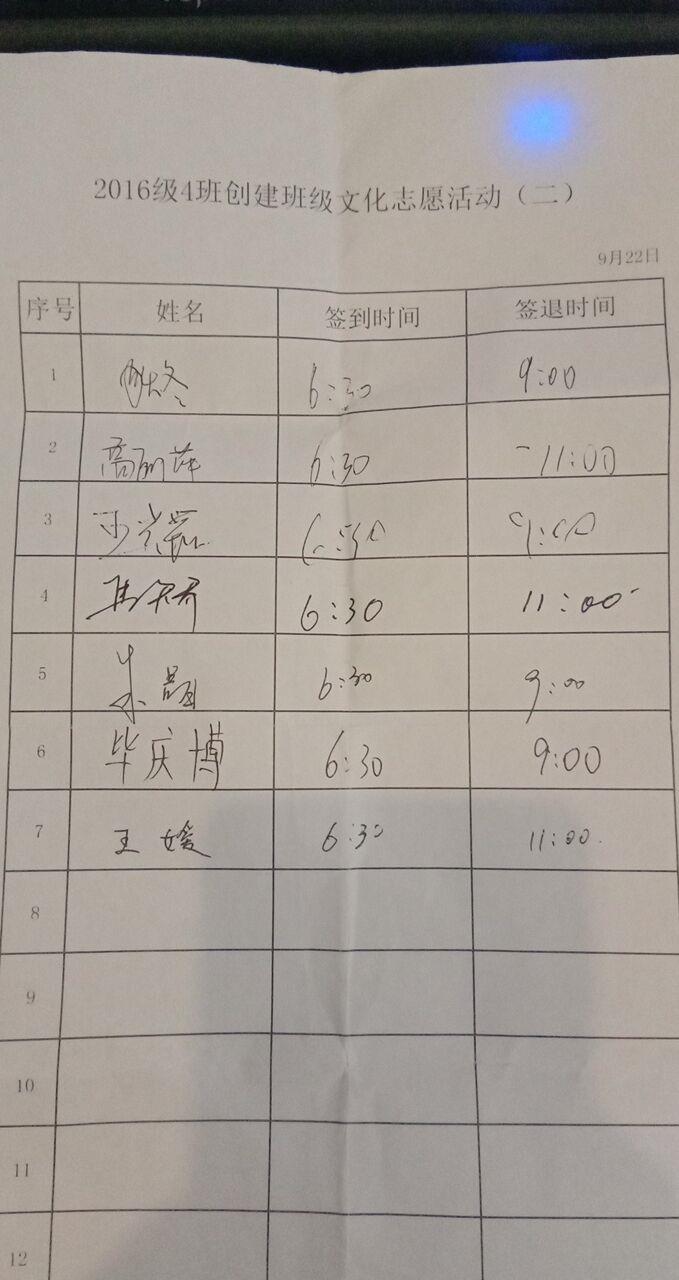 2016级4班创建班级文化志愿活动（二）
9月22日
序号 姓名 签到时间 签退时间
1 6:30 9:00
2 高丽萍 6:30 11:00
3 6:30 9:00
4 6:30 11:00
5 朱 6:30 9:00
6 毕庆博 6:30 9:00
7 王媛 6:30 11:00
8
9
10
11
12